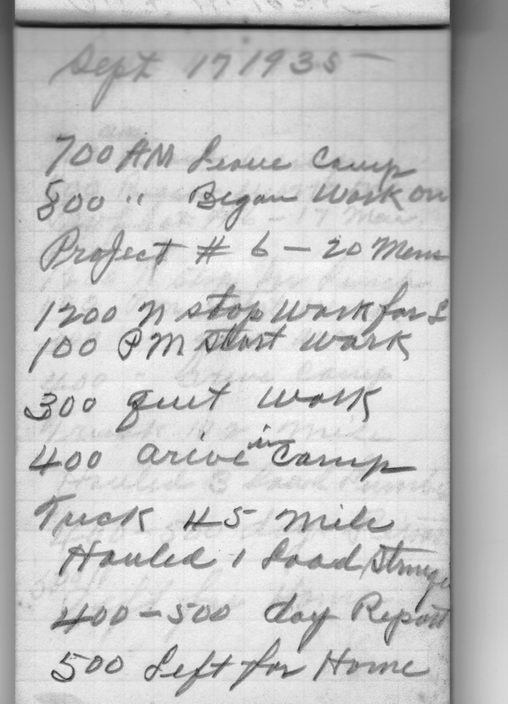 Sept 17 1935 —
700 AM Leave Camp
800 " Began Work on
Project # 6 - 20 Men
1200 N stop Work for L
100 PM Start Work
300 quit Work
400 arive in Camp
Truck 45 Mile
Hauled 1 Load
400-500 day Report
500 Left for Home